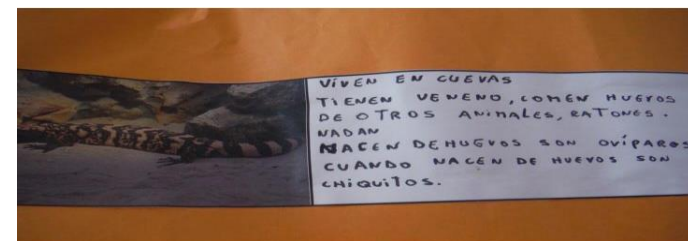 VIVEN EN CUEVAS
TIENEN VENENO, COMEN HUEVOS
DE OTROS ANIMALES, RATONES.
NADAN
NACEN DE HUEVOS SON OVÍPAROS
CUANDO NACEN DE HUEVOS SON
CHIQUITOS.